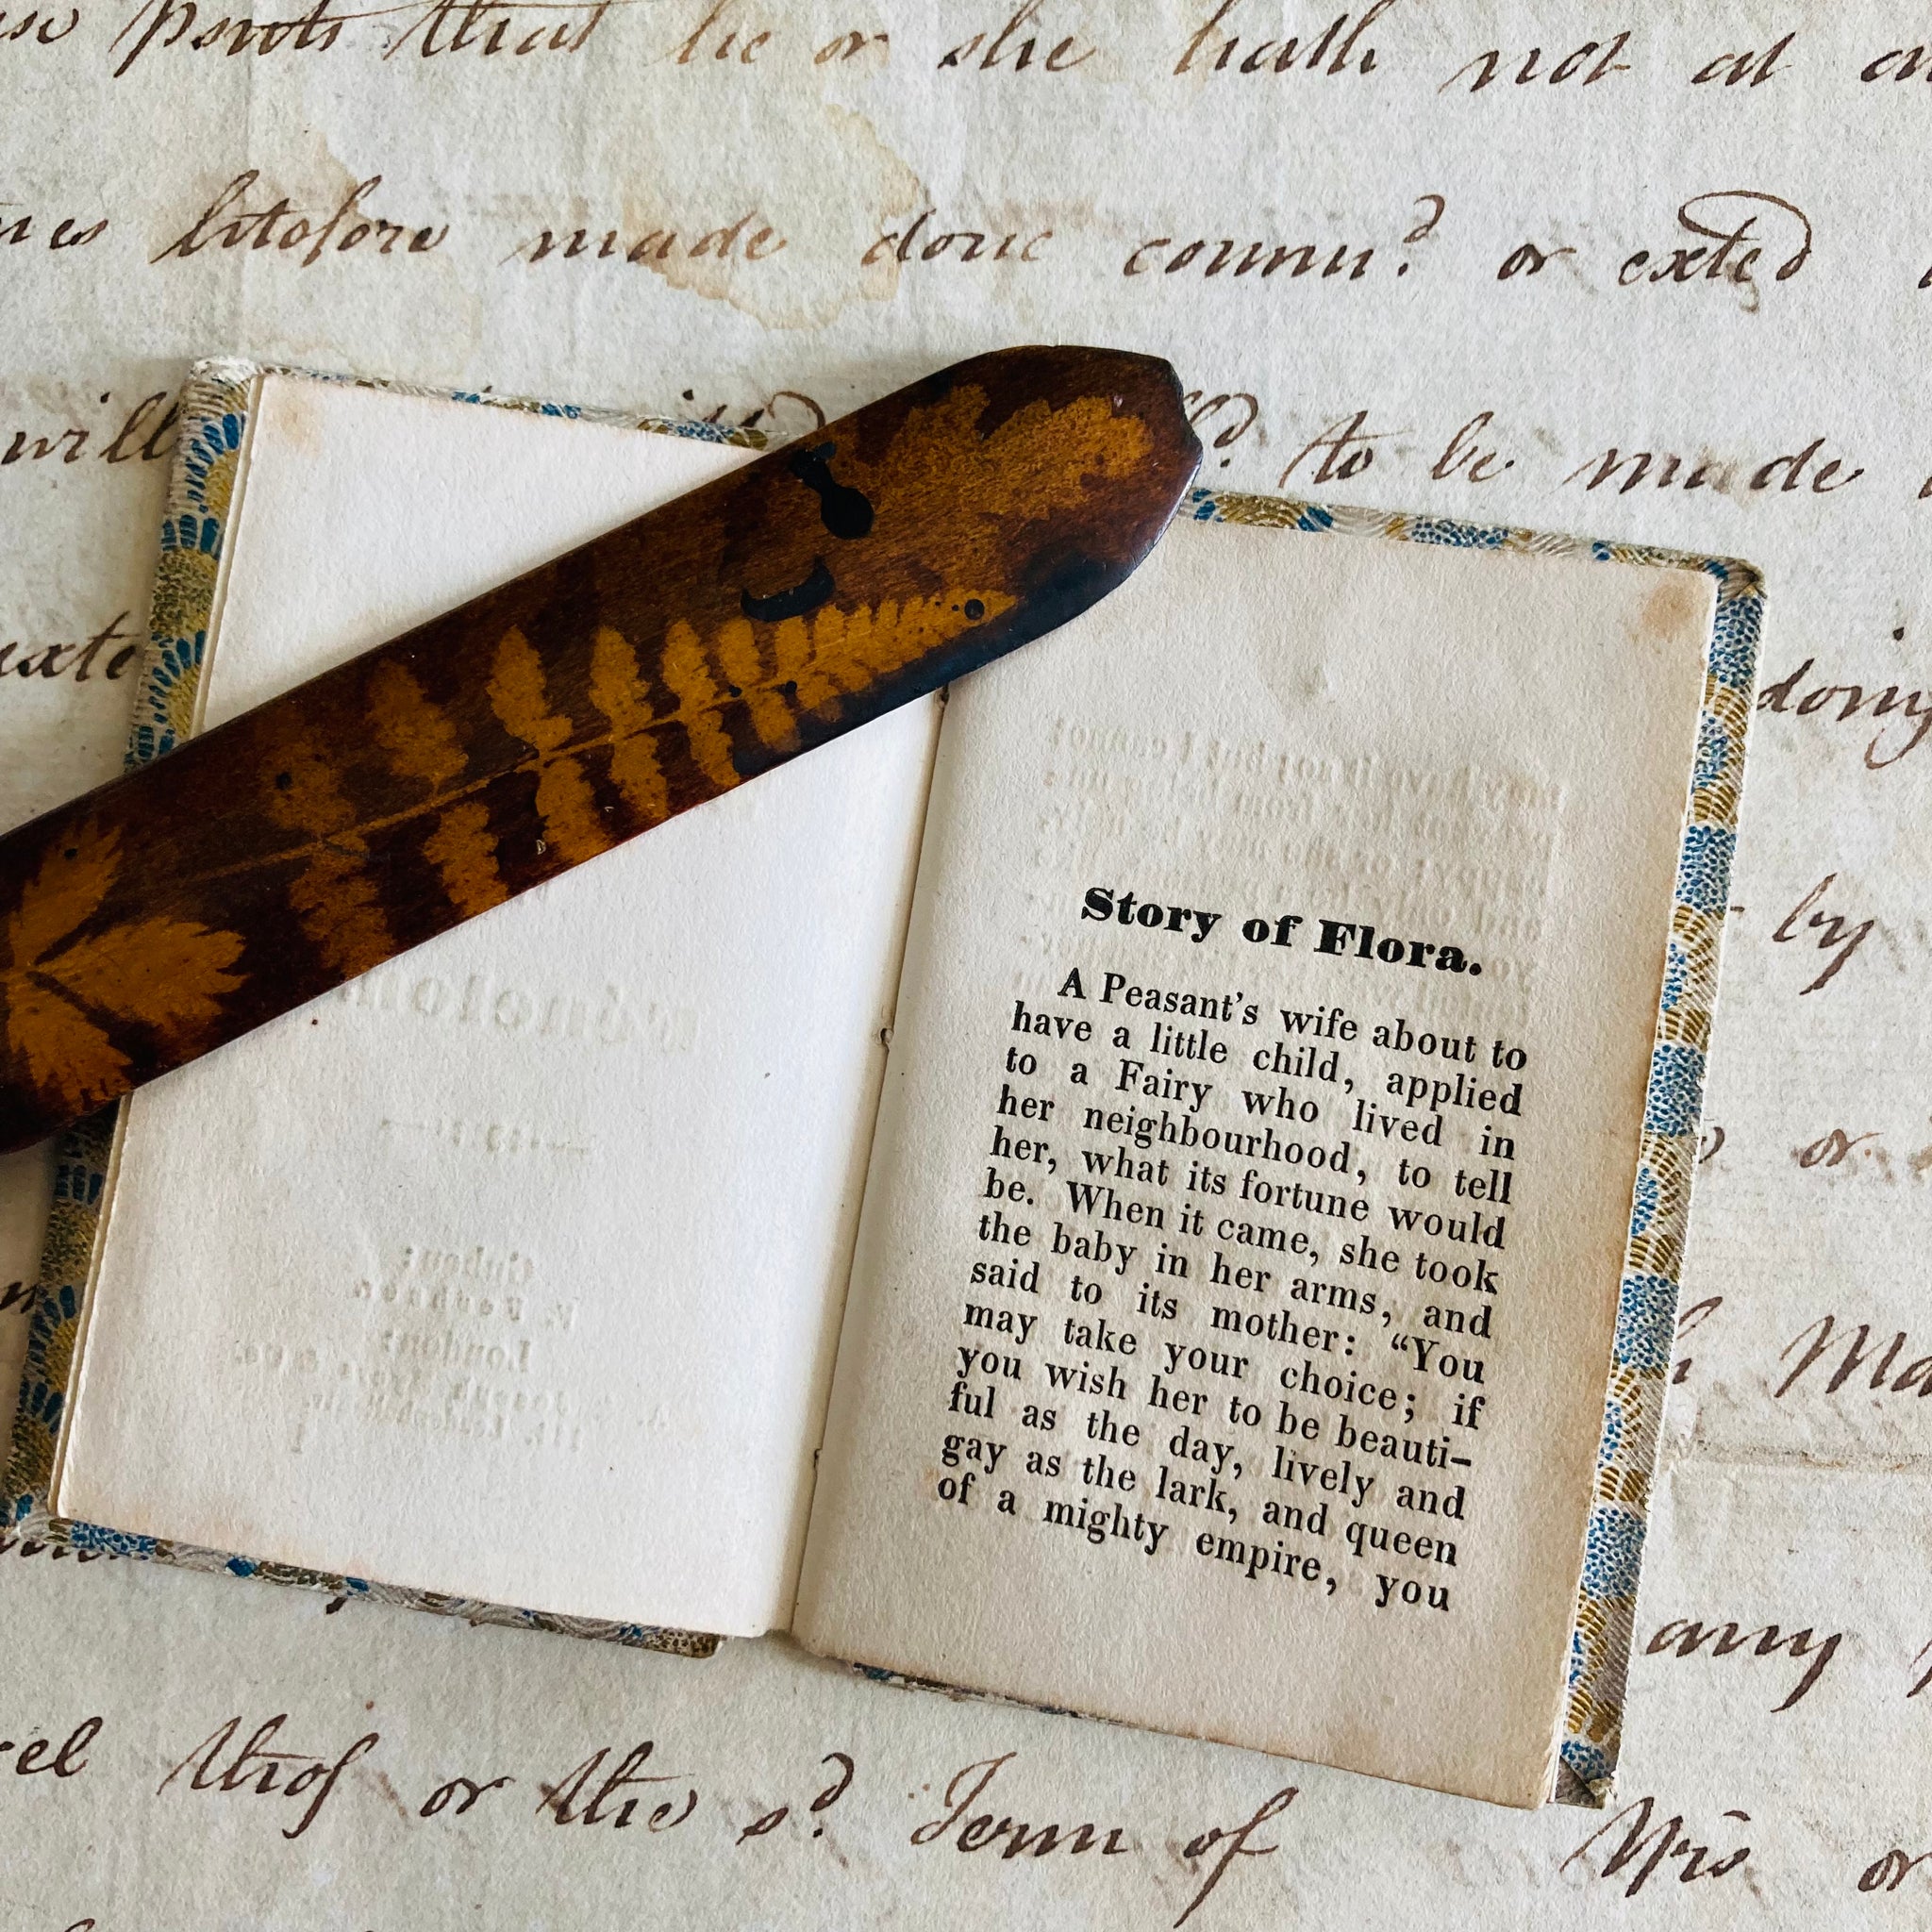 that he or she hath not at
made done or exted
will to be made
exte
doing
Story of Flora.
A Peasant's wife about to
have a little child, applied
to a Fairy who lived in
her neighbourhood, to tell
her, what its fortune would
be. When it came, she took
the baby in her arms, and
said to its mother: “You
may take your choice; if
you wish her to be beauti-
ful as the day, lively and
gay as the lark, and queen
of a mighty empire, you
by
or
any
or the sd. Term of Yrs or